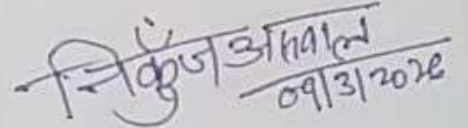 निकुँज अग्रवाल
09/3/2026